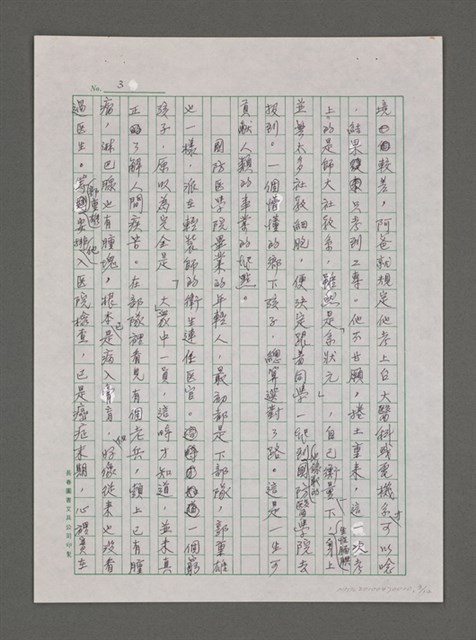 No. 3
境較差，阿爸就規定他考上台大醫科或電機系才可以唸
，結果只考到工專。他不甘願，捲土重來，這一次考
上的是師大社教系，雖然是系狀元，自己衡量，身上
並無太多社教細胞，便決定跟著同學一起到國防醫學院去
報到。一個懵懂的鄉下孩子，總算選對了路。這是一生可
貢獻人類的事業的起點。
國防医學院畢業的年輕人，最初都是下部隊，郭董雄
也一樣，派在輕裝師的衛生連任医官。一個窮
孩子，原以為完全是「大家中一員」，這時才知道，並未真
正了解人間疾苦。在部隊裡看見有個老兵，頸上已有腫
瘤，淋巴腺也有腫塊，根本是已病入膏肓，好像從來也沒看
過医生。郭董雄把他送入医院檢查，已是癌症末期，心裡實在